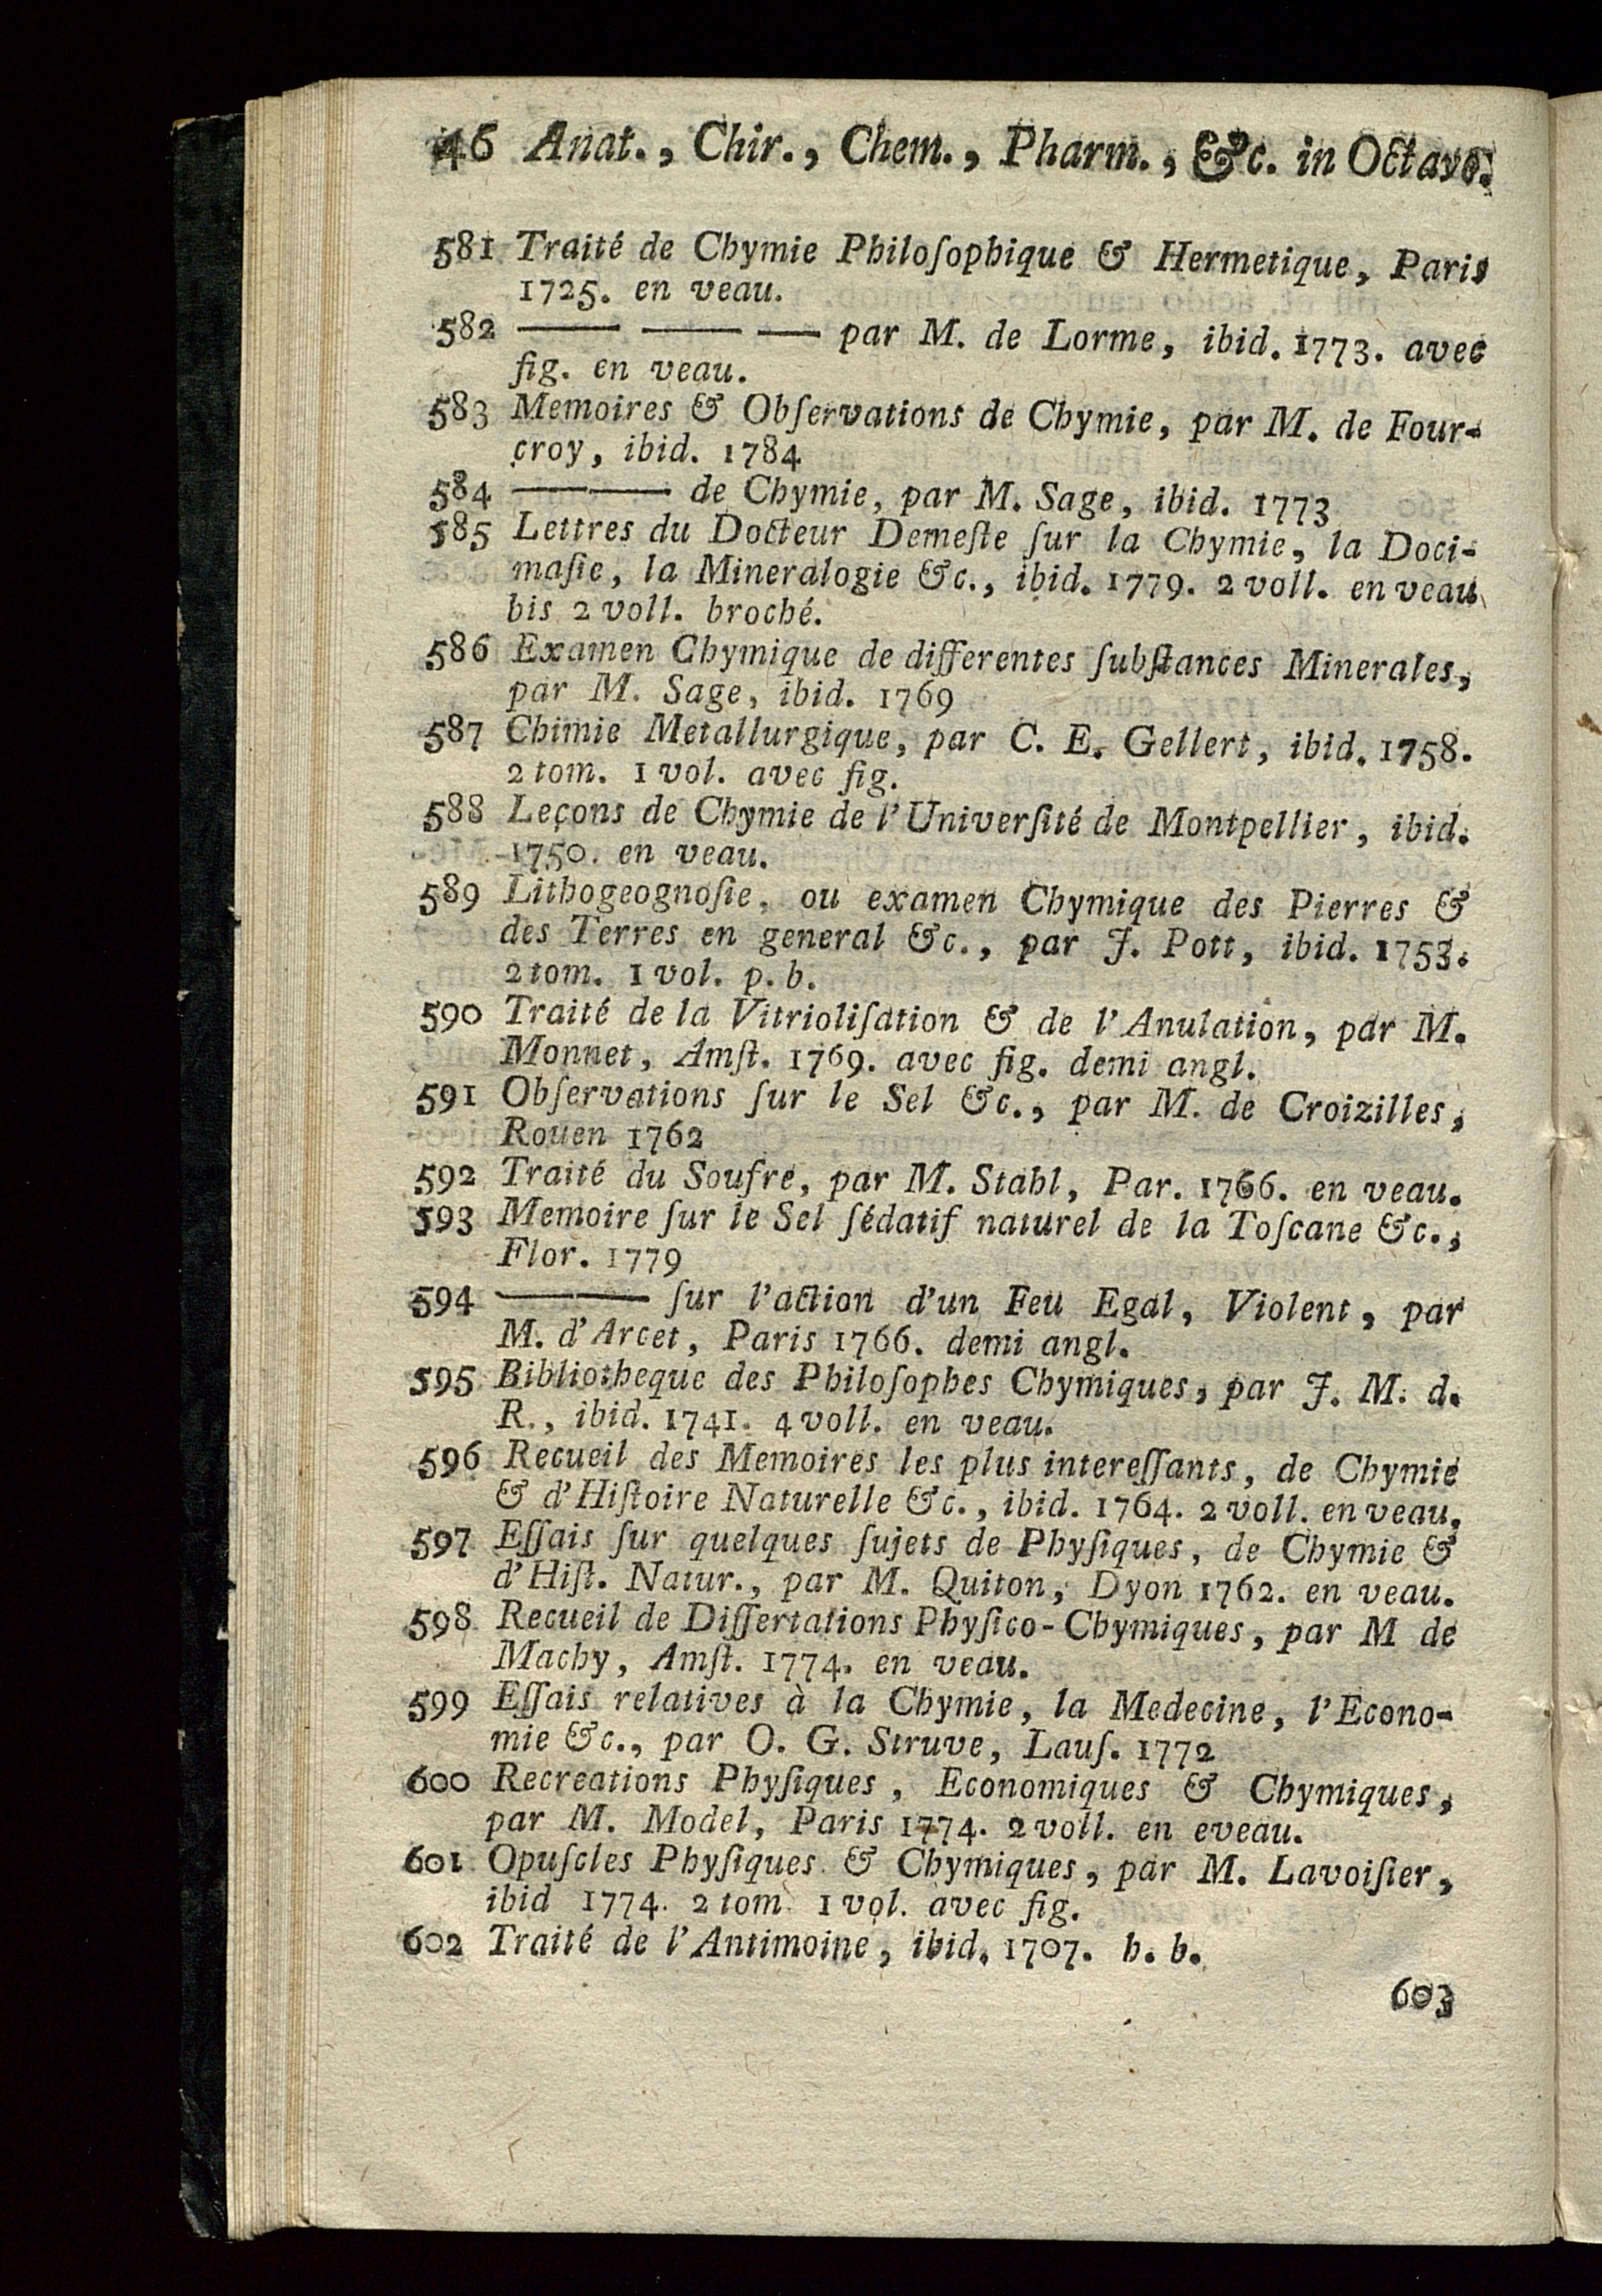 46 Anat., Chir., Chem., Pharm., &c. in Octavo.
581 Traité de Chymie Philoſophique & Hermetique, Paris
1725. en veau.
582 ——— ——— —— par M. de Lorme, ibid. 1773. avec
fig. en veau.
583 Memoires & Obſervations de Chymie, par M. de Four-
croy, ibid. 1784
584 ———— de Chymie, par M. Sage, ibid. 1773
585 Lettres du Docteur Demeſte ſur la Chymie, la Doci-
maſie, la Mineralogie &c., ibid. 1779. 2 voll. en veau
bis 2 voll. broché.
586 Examen Chymique de differentes ſubſtances Minerales,
par M. Sage, ibid. 1769
587 Chimie Metallurgique, par C. E. Gellert, ibid. 1758.
2 tom. 1 vol. avec fig.
588 Leçons de Chymie de l'Univerſité de Montpellier, ibid.
1750. en veau.
589 Lithogeognoſie, ou examen Chymique des Pierres &
des Terres en general &c., par J. Pott, ibid. 1753.
2 tom. 1 vol. p. b.
590 Traité de la Vitrioliſation & de l'Anulation, par M.
Monnet, Amſt. 1769. avec fig. demi angl.
591 Obſervations ſur le Sel &c., par M. de Croizilles,
Rouen 1762
592 Traité du Soufre, par M. Stahl, Par. 1766. en veau.
593 Memoire ſur le Sel ſédatif naturel de la Toſcane &c.,
Flor. 1779
594 ———— ſur l'action d'un Feu Egal, Violent, par
M. d'Arcet, Paris 1766. demi angl.
595 Bibliotheque des Philoſophes Chymiques, par J. M. d.
R., ibid. 1741. 4 voll. en veau.
596 Recueil des Memoires les plus intereſſants, de Chymie
& d'Hiſtoire Naturelle &c., ibid. 1764. 2 voll. en veau.
597 Eſſais ſur quelques ſujets de Phyſiques, de Chymie &
d'Hiſt. Natur., par M. Quiton, Dyon 1762. en veau.
598 Recueil de Diſſertations Phyſico-Chymiques, par M de
Machy, Amſt. 1774. en veau.
599 Eſſais relatives à la Chymie, la Medecine, l'Econo-
mie &c., par O. G. Struve, Lauſ. 1772
600 Recreations Phyſiques, Economiques & Chymiques,
par M. Model, Paris 1774. 2 voll. en eveau.
601 Opuſcles Phyſiques & Chymiques, par M. Lavoiſier,
ibid 1774. 2 tom 1 vol. avec fig.
602 Traité de l'Antimoine, ibid. 1707. h. b.
603